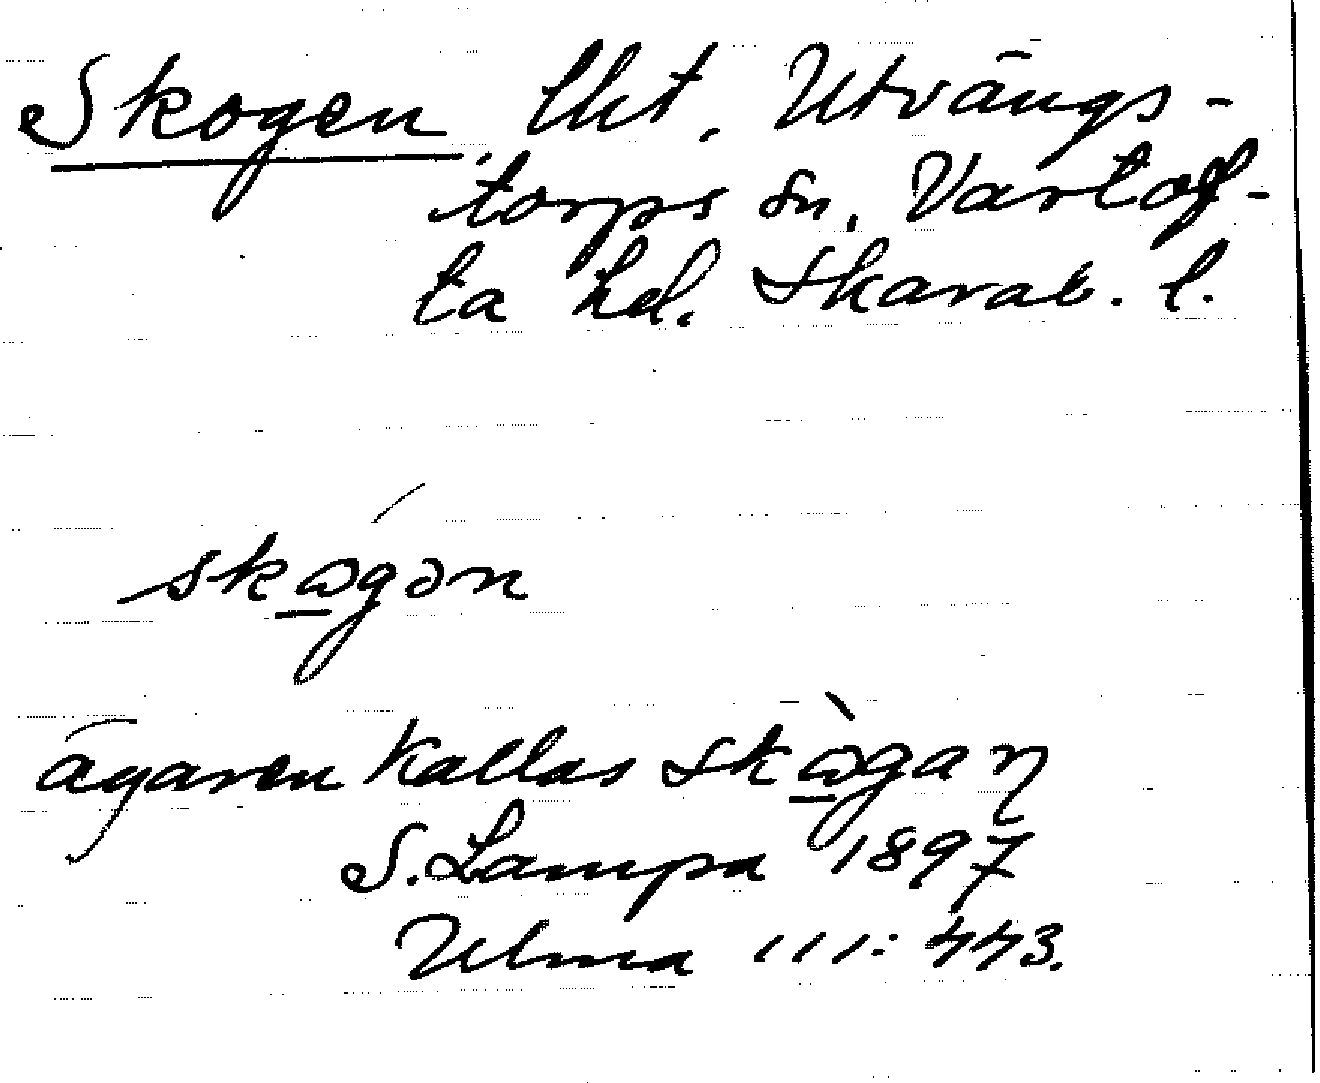 Skogen. lht. Utvängs-
torps sn, Vartof-
ta hd. Skarab. l.
skågən
ägaren kallas skågaŋ
S. Lampa 1897
Ulma 111: 443.